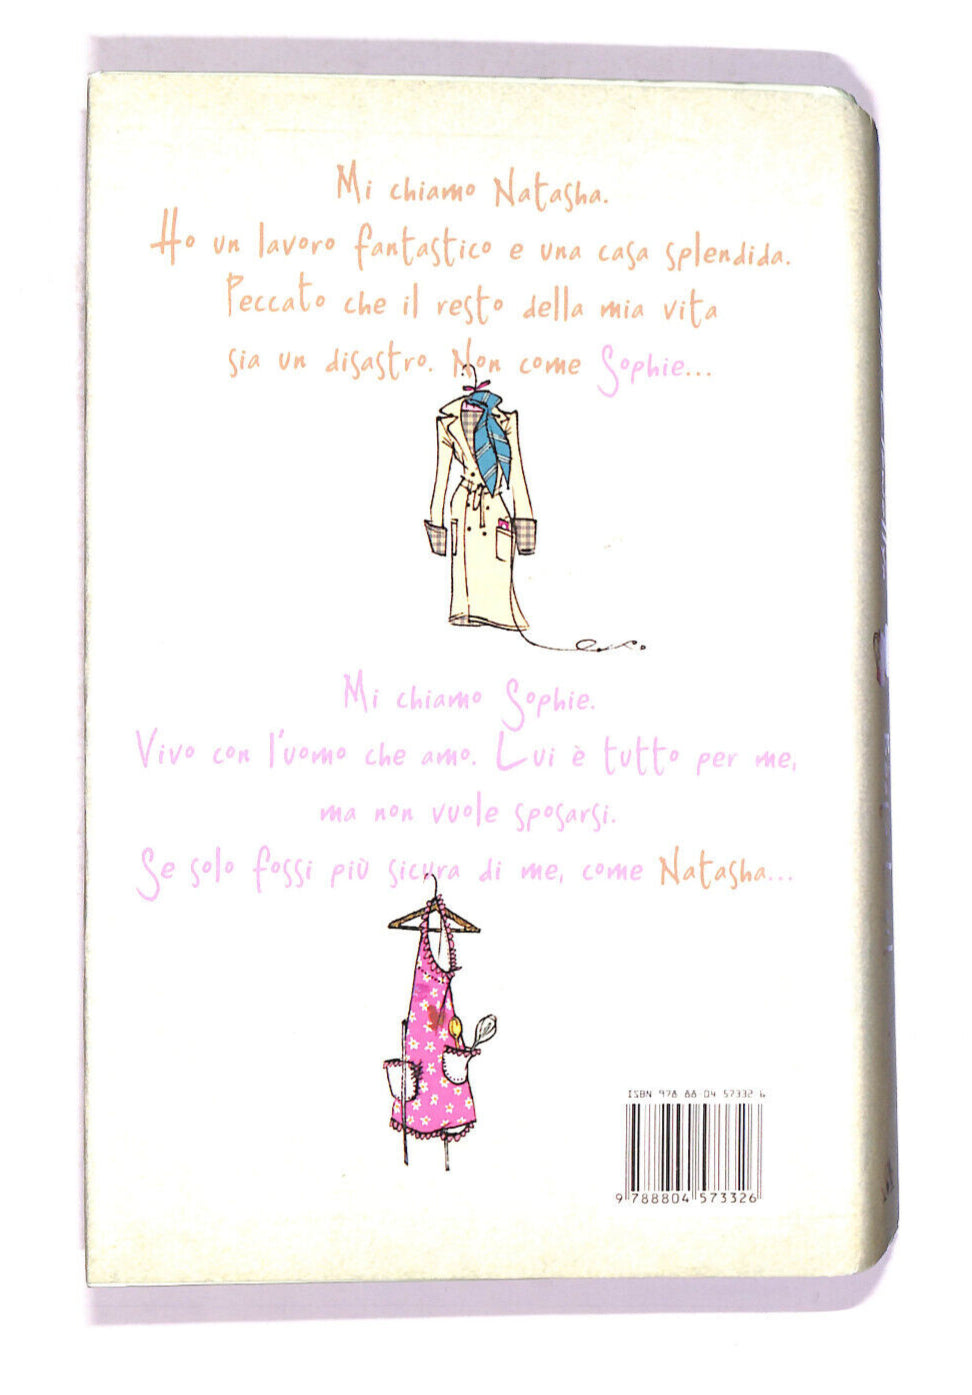 Mi chiamo Natasha.
Ho un lavoro fantastico e una casa splendida.
Peccato che il resto della mia vita
sia un disastro. Non come Sophie...
Mi chiamo Sophie.
Vivo con l'uomo che amo. Lui è tutto per me,
ma non vuole sposarsi.
Se solo fossi più sicura di me, come Natasha...
ISBN 978 88 04 57332 6
9 788804 573326